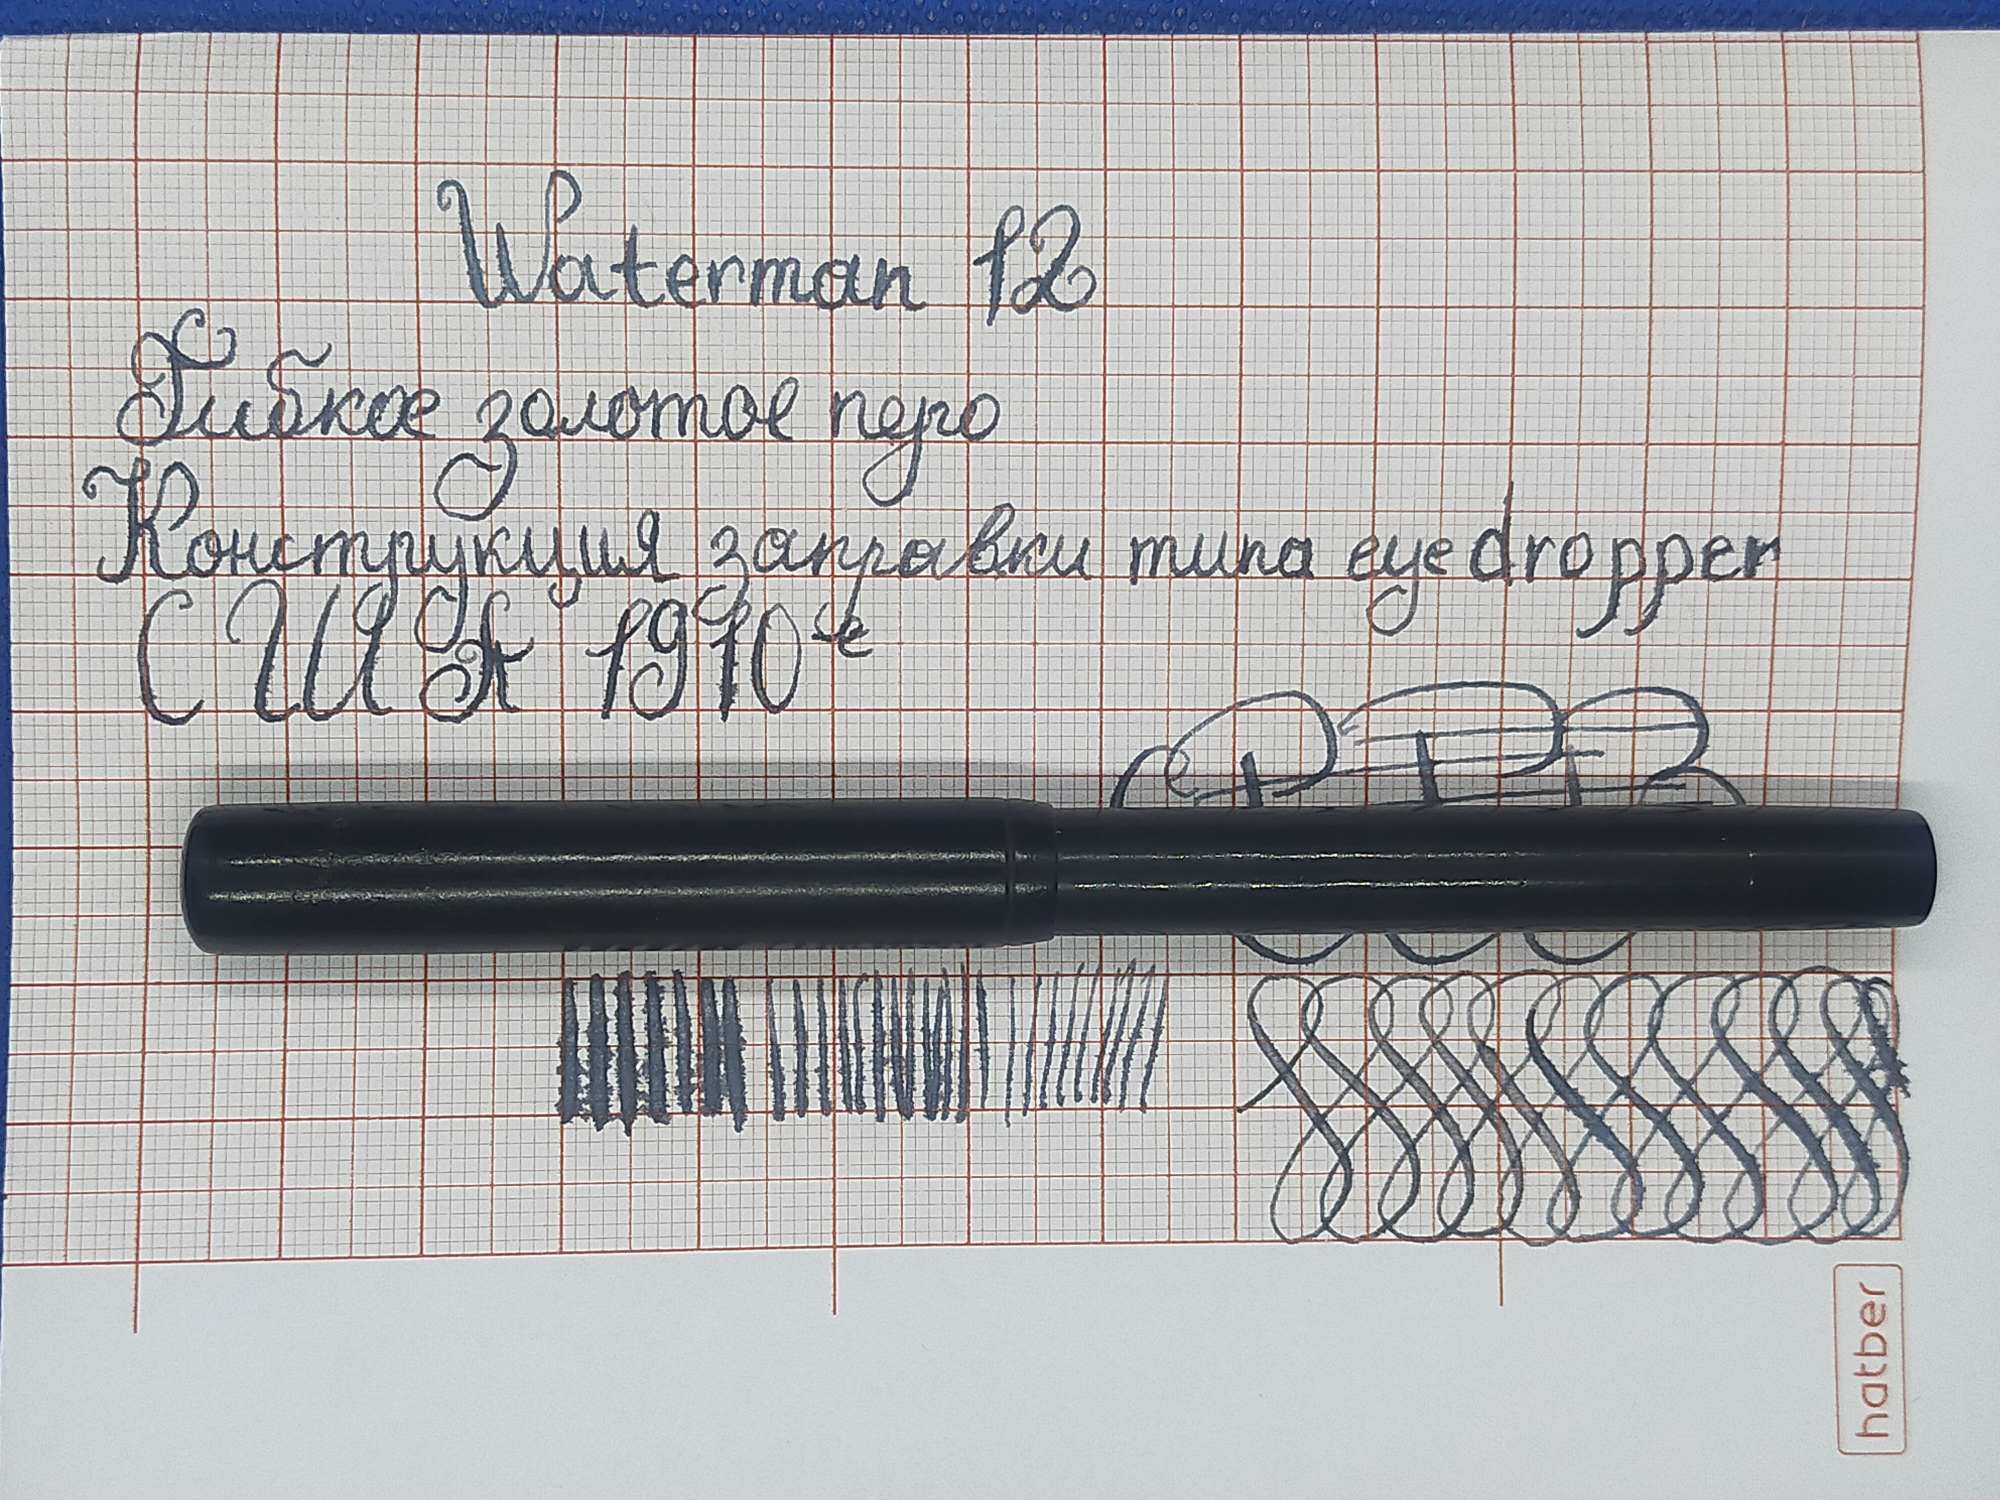 Waterman 12
Гибкое золотое перо
Конструкция заправки типа eyedropper
США 1910-е
hatber